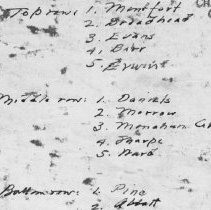 Top row: 1. Montfort
2. Broadhead
3. Evans
4. Barr
5. Erwin
Middle row: 1. Daniels
2. Morrow
3. Monahan
4. Tharpe
5. Ward
Bottom row: 1. Pine
2. Abbott